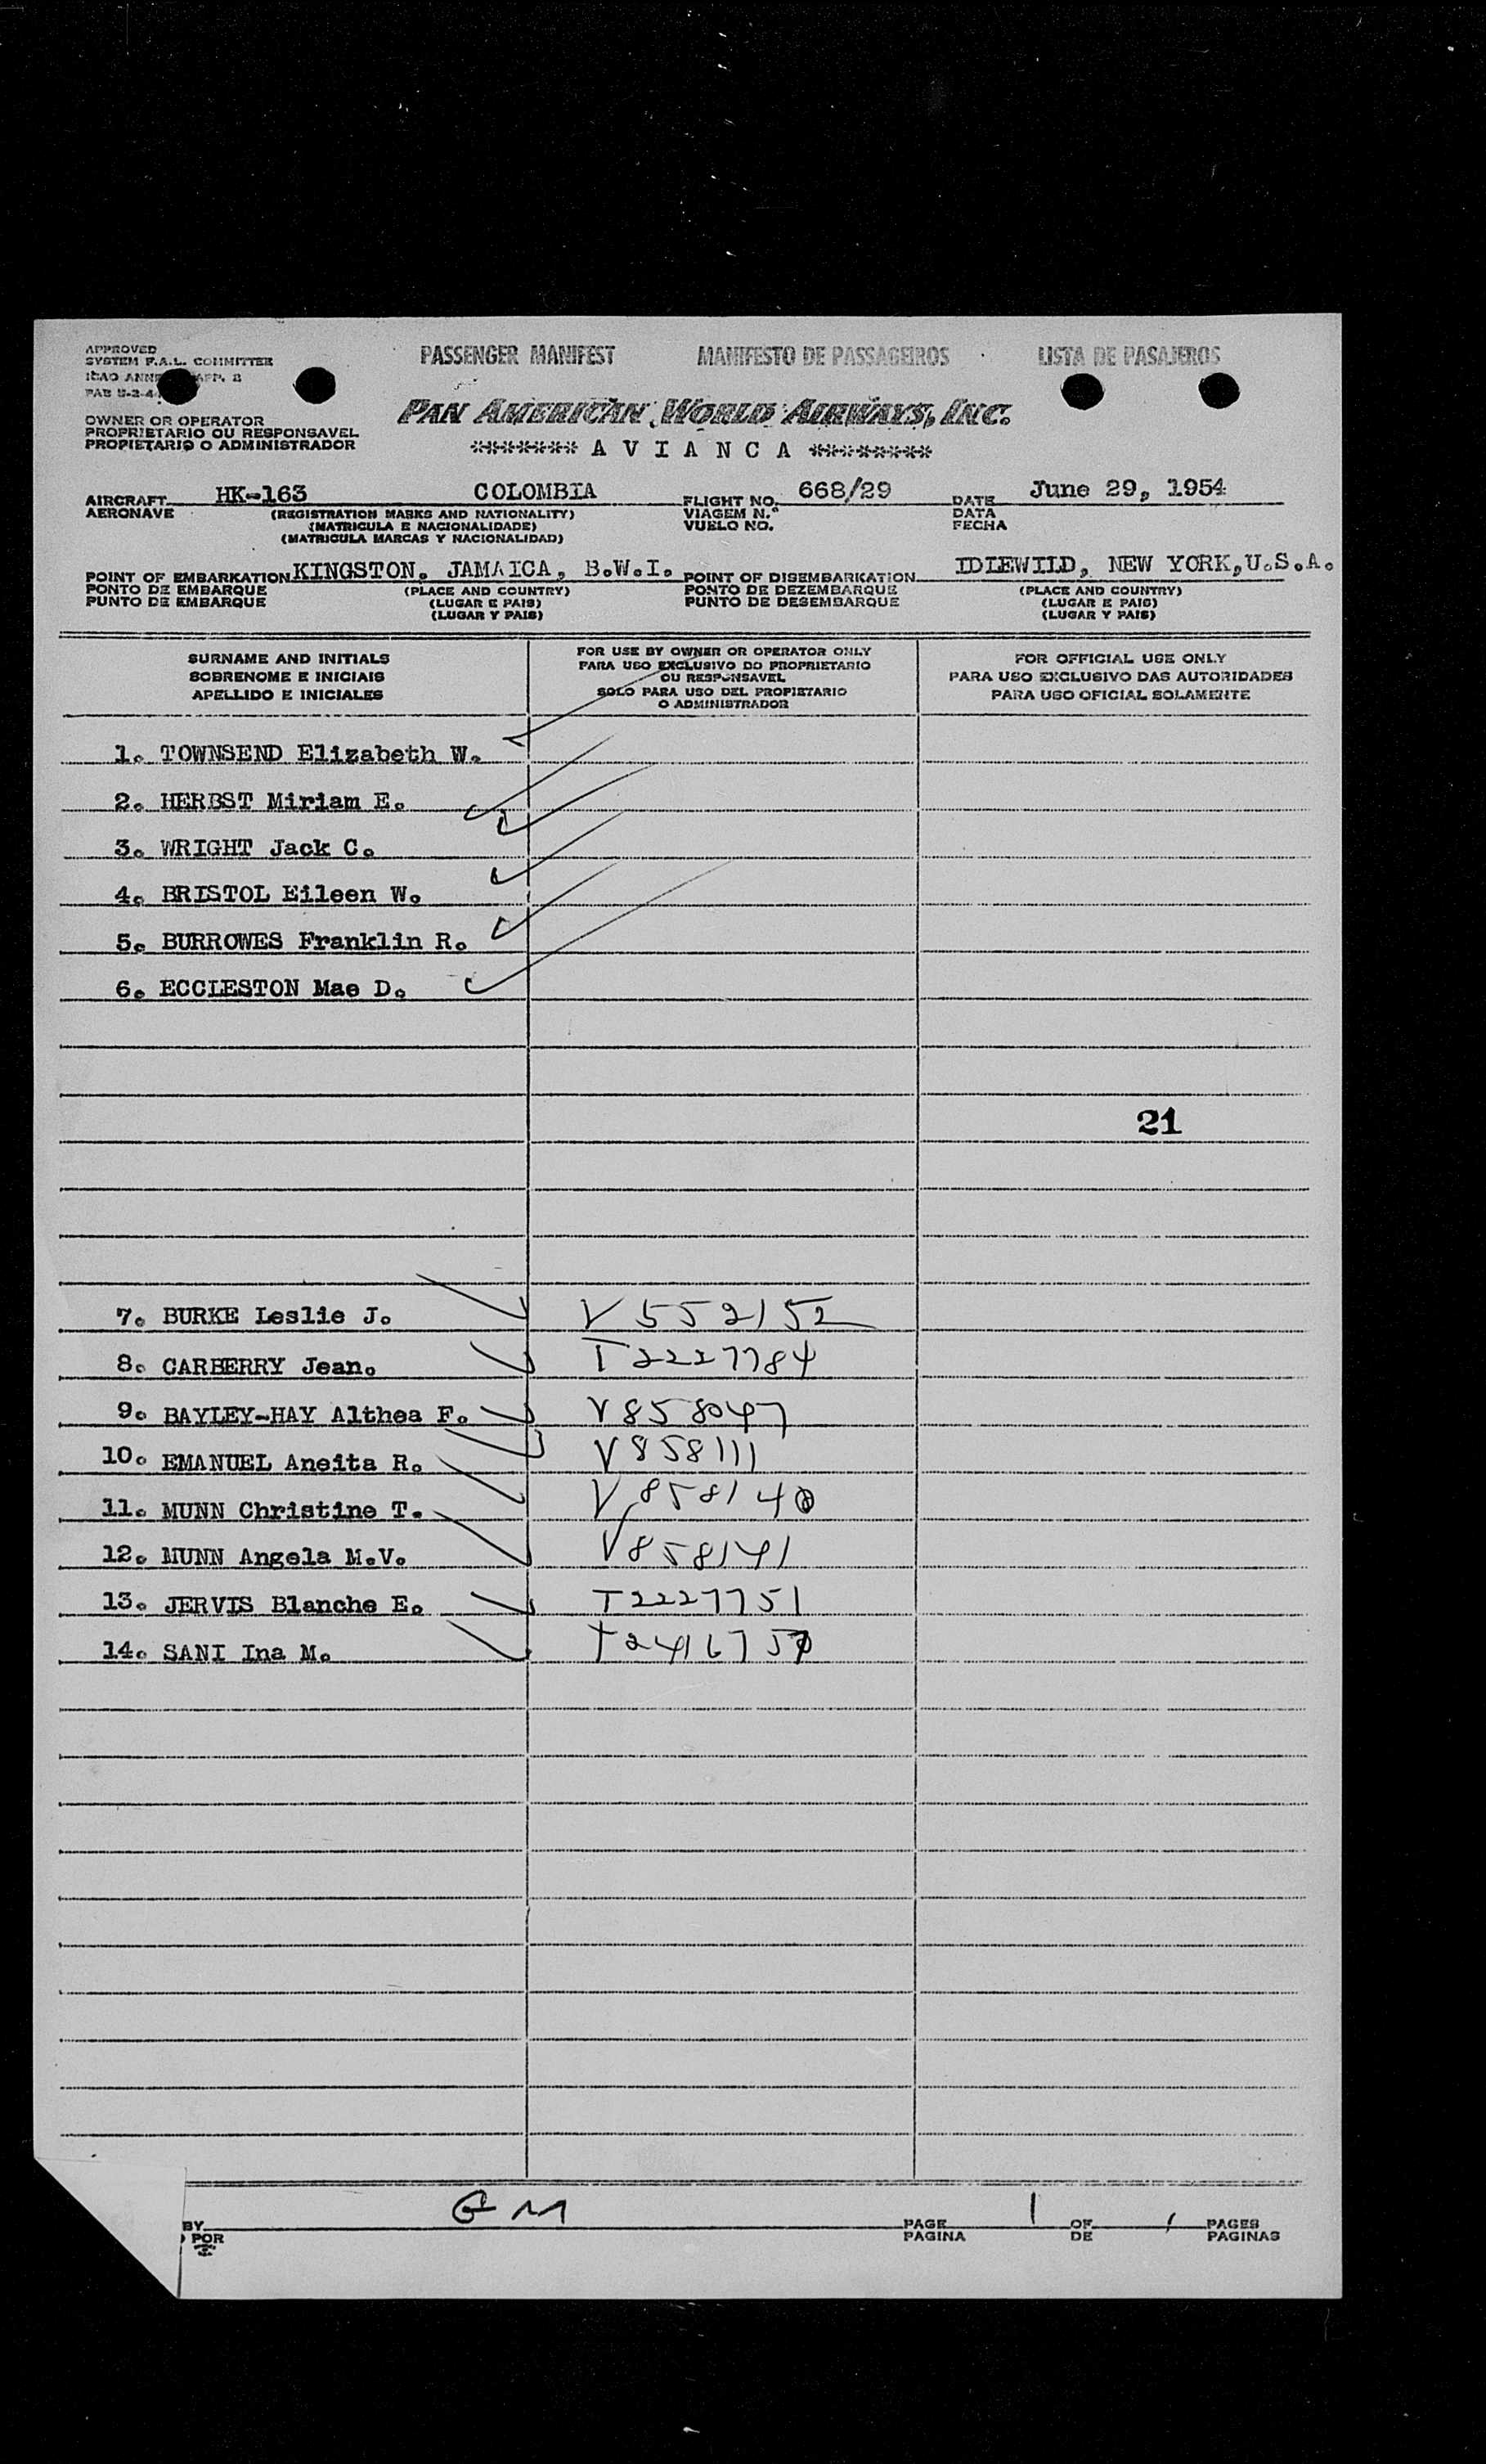 APPROVED
SYSTEM F.A.L. COMMITTEE
ICAO ANNE APP. 2
OWNER OR OPERATOR
PROPRIETARIO OU RESPONSAVEL
PROPIETARIO O ADMINISTRADOR
PASSENGER MANIFEST MANIFESTO DE PASSAGEIROS LISTA DE PASAJEROS
PAN AMERICAN WORLD AIRWAYS, INC.
******* A V I A N C A ********
AIRCRAFT HK-163 COLOMBIA FLIGHT NO. 668/29 DATE June 29, 1954
AERONAVE (REGISTRATION MARKS AND NATIONALITY) VIAGEM N.° DATA
(MATRICULA E NACIONALIDADE) VUELO NO. FECHA
(MATRICULA MARCAS Y NACIONALIDAD)
POINT OF EMBARKATION KINGSTON. JAMAICA, B.W.I. POINT OF DISEMBARKATION IDLEWILD, NEW YORK,U.S.A.
PONTO DE EMBARQUE (PLACE AND COUNTRY) PONTO DE DEZEMBARQUE (PLACE AND COUNTRY)
PUNTO DE EMBARQUE (LUGAR E PAIS) PUNTO DE DESEMBARQUE (LUGAR E PAIS)
(LUGAR Y PAIS) (LUGAR Y PAIS)
SURNAME AND INITIALS
SOBRENOME E INICIAIS
APELLIDO E INICIALES
FOR USE BY OWNER OR OPERATOR ONLY
PARA USO EXCLUSIVO DO PROPRIETARIO
OU RESPONSAVEL
SOLO PARA USO DEL PROPIETARIO
O ADMINISTRADOR
FOR OFFICIAL USE ONLY
PARA USO EXCLUSIVO DAS AUTORIDADES
PARA USO OFICIAL SOLAMENTE
1. TOWNSEND Elizabeth W.
2. HERBST Miriam E.
3. WRIGHT Jack C.
4. BRISTOL Eileen W.
5. BURROWES Franklin R.
6. ECCLESTON Mae D.
21
7. BURKE Leslie J. V552152
8. CARBERRY Jean. T2227784
9. BAYLEY-HAY Althea F. V858047
10. EMANUEL Aneita R. V858111
11. MUNN Christine T. V858140
12. MUNN Angela M.V. V858141
13. JERVIS Blanche E. T2227751
14. SANI Ina M.
BY GM PAGE 1 OF 1 PAGES
POR PAGINA DE PAGINAS